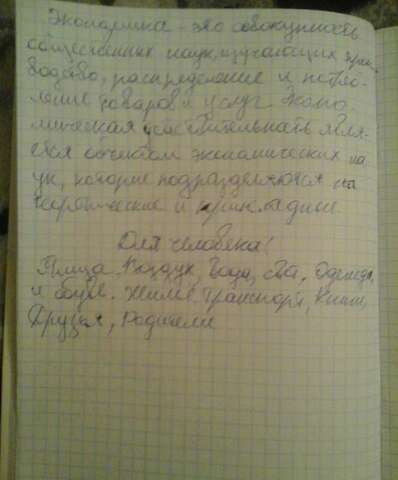 Экономика - это совокупность
общественных наук, изучающих произ-
водство, распределение и потреб-
ление товаров и услуг. Эконо-
мическая действительность явля-
ется объектом экономических на
ук, которые подразделяются на
теоретические и прикладные.
Для человека!
Пища. Воздух, Вода, Одежда,
и обувь. Жильё, Транспорт, Книги,
Друзья, Родители